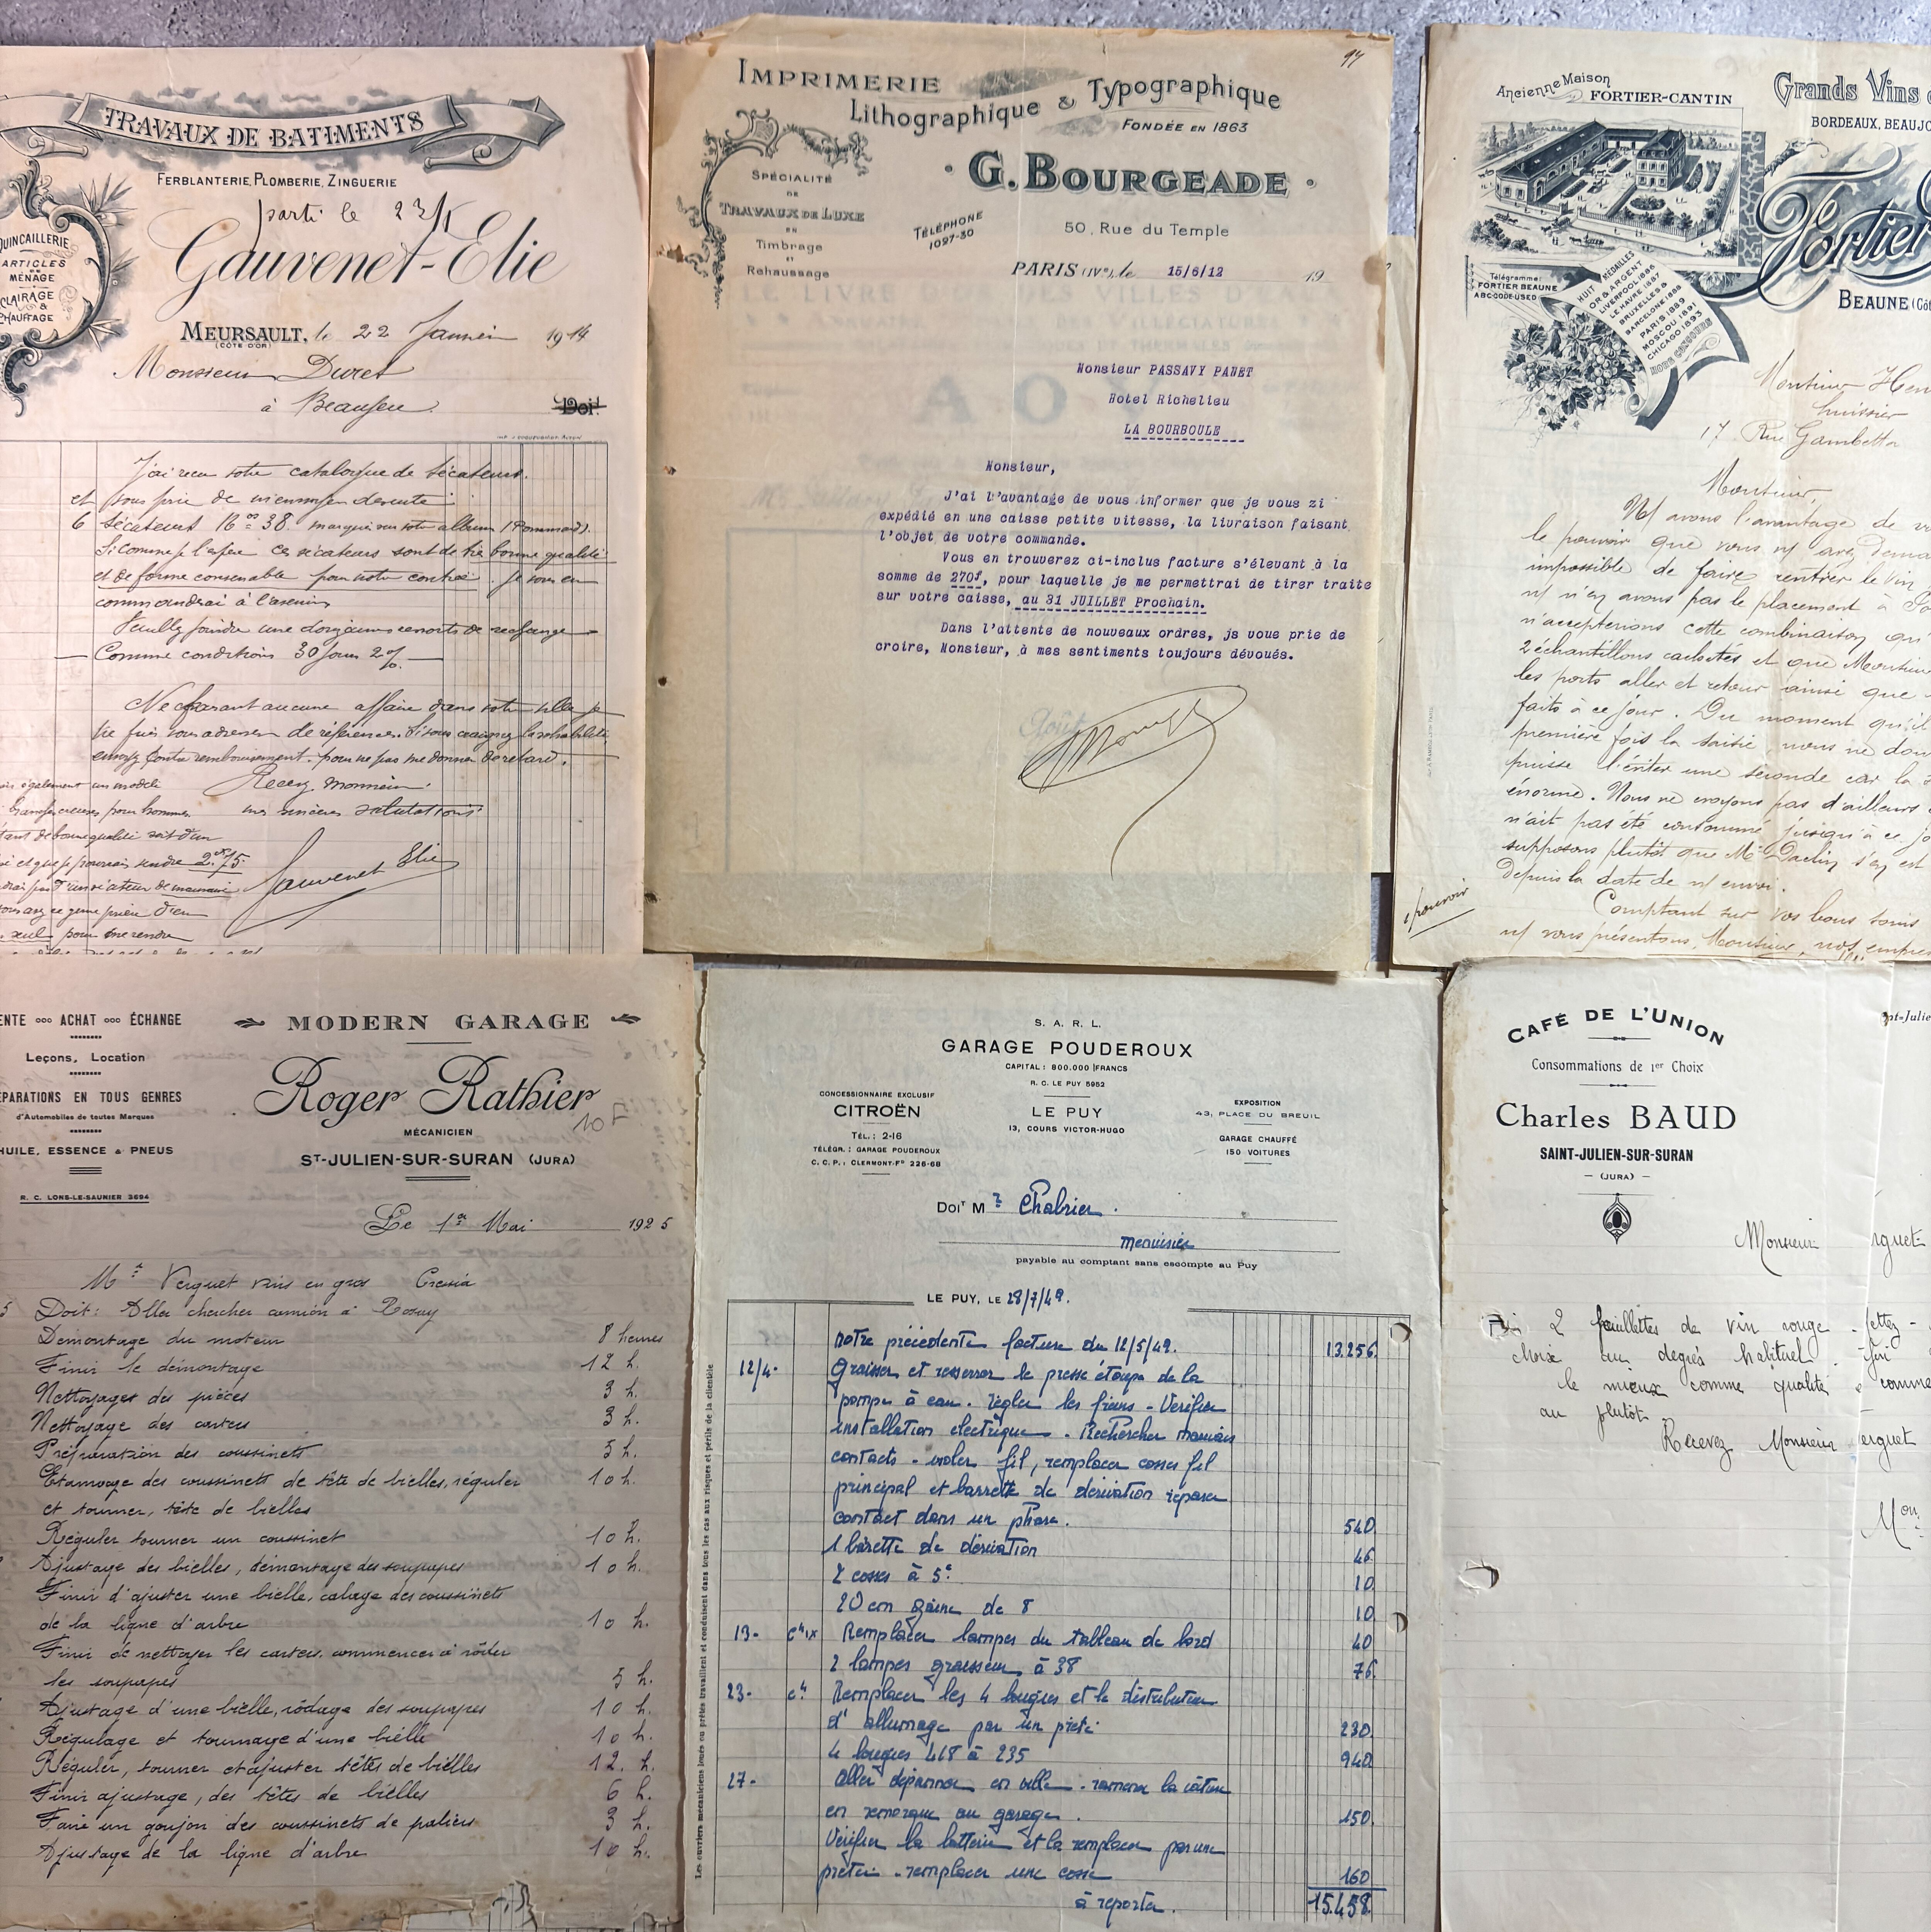 TRAVAUX DE BATIMENTS
FERBLANTERIE, PLOMBERIE, ZINGUERIE
parti le 23/1
Gauvenet-Elie
QUINCAILLERIE
ARTICLES
DE
MÉNAGE
ÉCLAIRAGE
&
CHAUFFAGE
MEURSAULT, le 22 Janvier 1914
(CÔTE D'OR)
Monsieur Duret
à
Doit
J'ai reçu votre catalogue de sécateurs
et vous prie de m'envoyer de suite
6 sécateurs Nos 38. marqué sur votre album (Pommard).
Si comme je l'espère ces sécateurs sont de tre bonne qualité
et de forme convenable pour notre contrée. je vous en
commanderai à l'avenir
Veuillez joindre une douzaine ressorts de rechange
Comme conditions 30 jours 2%.
Ne faisant aucune affaire dans votre ville je
ne puis vous adresser de références. Si vous craignez la solvabilité
envoyez contre remboursement. pour ne pas me donner de retard.
Recevez monsieur
mes sincères salutations
également un modèle
pour hommes
de bonne qualité soit d'un
et que je pourrais vendre 2.75
ce genre prière d'en
seul pour me rendre
Gauvenet Elie
IMPRIMERIE
Lithographique & Typographique
FONDÉE EN 1863
94
G. BOURGEADE
SPÉCIALITÉ
DE
TRAVAUX DE LUXE
EN
Timbrage
ET
Rehaussage
TÉLÉPHONE
1027-30
50, Rue du Temple
PARIS (IVe), le 15/6/12 19
Monsieur PASSAVY PANET
Hotel Richelieu
LA BOURBOULE
Monsieur,
J'ai l'avantage de vous informer que je vous zi
expédié en une caisse petite vitesse, la livraison faisant
l'objet de votre commande.
Vous en trouverez ci-inclus facture s'élevant à la
somme de 270f, pour laquelle je me permettrai de tirer traite
sur votre caisse, au 31 JUILLET Prochain.
Dans l'attente de nouveaux ordres, js vous prie de
croire, Monsieur, à mes sentiments toujours dévoués.
Août
Ancienne Maison
FORTIER-CANTIN
Grands Vins
BORDEAUX, BEAUJO
Fortier
BEAUNE (Côt
Télégramme:
FORTIER BEAUNE
ABC-CODE-USED
HUIT MÉDAILLES
OR & ARGENT
LIVERPOOL 1886
LE HAVRE 1887
BRUXELLES &
BARCELONE 1888
PARIS 1889
MOSCOU 1891
CHICAGO 1893
HORS CONCOURS
Monsieur Hen
huissier
17 Rue Gambetta
Monsieur,
Ns avons l'avantage de v
le pouvoir que vous ns avez dema
impossible de faire rentrer le vin
ns n'en avons pas le placement à
n'accepterions cette combinaison qu'
2 échantillons cachetés et que Monsieur
les ports aller et retour ainsi que
faits à ce jour. Du moment qu'il
première fois la saisie, nous ne dou
puisse l'éviter une seconde car la
énorme. Nous ne croyons pas d'ailleurs
n'ait pas été consommé jusqu'à ce jo
supposons plutôt que Mr s'en est
depuis la date de ns envoi.
Comptant sur vos bons soins
ns vous présentons, Monsieur, nos empres
1 pouvoir
ENTE ooo ACHAT ooo ÉCHANGE
Leçons, Location
ÉPARATIONS EN TOUS GENRES
d'Automobiles de toutes Marques
HUILE, ESSENCE & PNEUS
R. C. LONS-LE-SAUNIER 3694
MODERN GARAGE
Roger Rathier
10 F
MÉCANICIEN
ST-JULIEN-SUR-SURAN (JURA)
Le 1er Mai 1925
Mr Verguet vins en gros Cressia
Doit: Aller chercher camion à
Demontage du moteur 8 heures
Finir le démontage 12 h.
Nettoyages des pièces 3 h.
Nettoyage des carters 3 h.
Préparation des coussinets 5 h.
Etamage des coussinets de tête de bielles, réguler 10 h.
et tourner, tête de bielles
Réguler tourner un coussinet 10 h.
Ajustage des bielles, démontage des soupapes 10 h.
Finir d'ajuster une bielle, calage des coussinets
de la ligne d'arbre 10 h.
Finir de nettoyer les carters, commencer à rôder
les soupapes 5 h.
Ajustage d'une bielle, rôdage des soupapes 10 h.
Régulage et tournage d'une bielle 10 h.
Réguler, tourner et ajuster têtes de bielles 12. h.
Finir ajustage, des têtes de bielles 6 h.
Faire un goujon des coussinets de paliers 3 h.
Ajustage de la ligne d'arbre 10 h.
S. A. R. L.
GARAGE POUDEROUX
CAPITAL: 800.000 FRANCS
R. C. LE PUY 5952
CONCESSIONNAIRE EXCLUSIF
CITROËN
TÉL.: 2-16
TÉLÉGR.: GARAGE POUDEROUX
C. C. P.: CLERMONT-FD 226-68
LE PUY
13, COURS VICTOR-HUGO
EXPOSITION
43, PLACE DU BREUIL
GARAGE CHAUFFÉ
150 VOITURES
DOIT Mr Chabrier.
menuisier
payable au comptant sans escompte au Puy
LE PUY, LE 28/7/49.
Les ouvriers mécaniciens loués ou prêtés travaillent et conduisent dans tous les cas aux risques et périls de la clientèle
Notre précédente facture du 12/5/49. 13.256
12/4- Graisser et resserrer le presse étoupe de la
pompe à eau. régler les freins - Vérifier
installation électrique. Rechercher mauvais
contacts - isoler fil, remplacer cosses fil
principal et barrette de dérivation réparer
contact dans un phare. 540
1 barette de dérivation 46
2 cosses à 5f 10
20 cm gaine de 8 10
13- Remplacer lampes du tableau de bord 40
2 lampes graisseur à 38 76
23- Remplacer les 4 bougies et le distributeur
d'allumage par un prêté 230
4 bougies L18 à 235 940
27- Aller dépanner en ville - ramener la voiture
en remorque au garage. 150
Vérifier la batterie et la remplacer par une
prêtée - remplacer une cosse 160
à reporter. 15.458
CAFÉ DE L'UNION
Consommations de 1er Choix
Charles BAUD
SAINT-JULIEN-SUR-SURAN
(JURA)
nt-Julie
Monsieur rguet
2 feuillettes de vin rouge
choix au degrés habituel
le mieux comme qualité comme
au plutôt.
Recevez Monsieur erguet
Mon